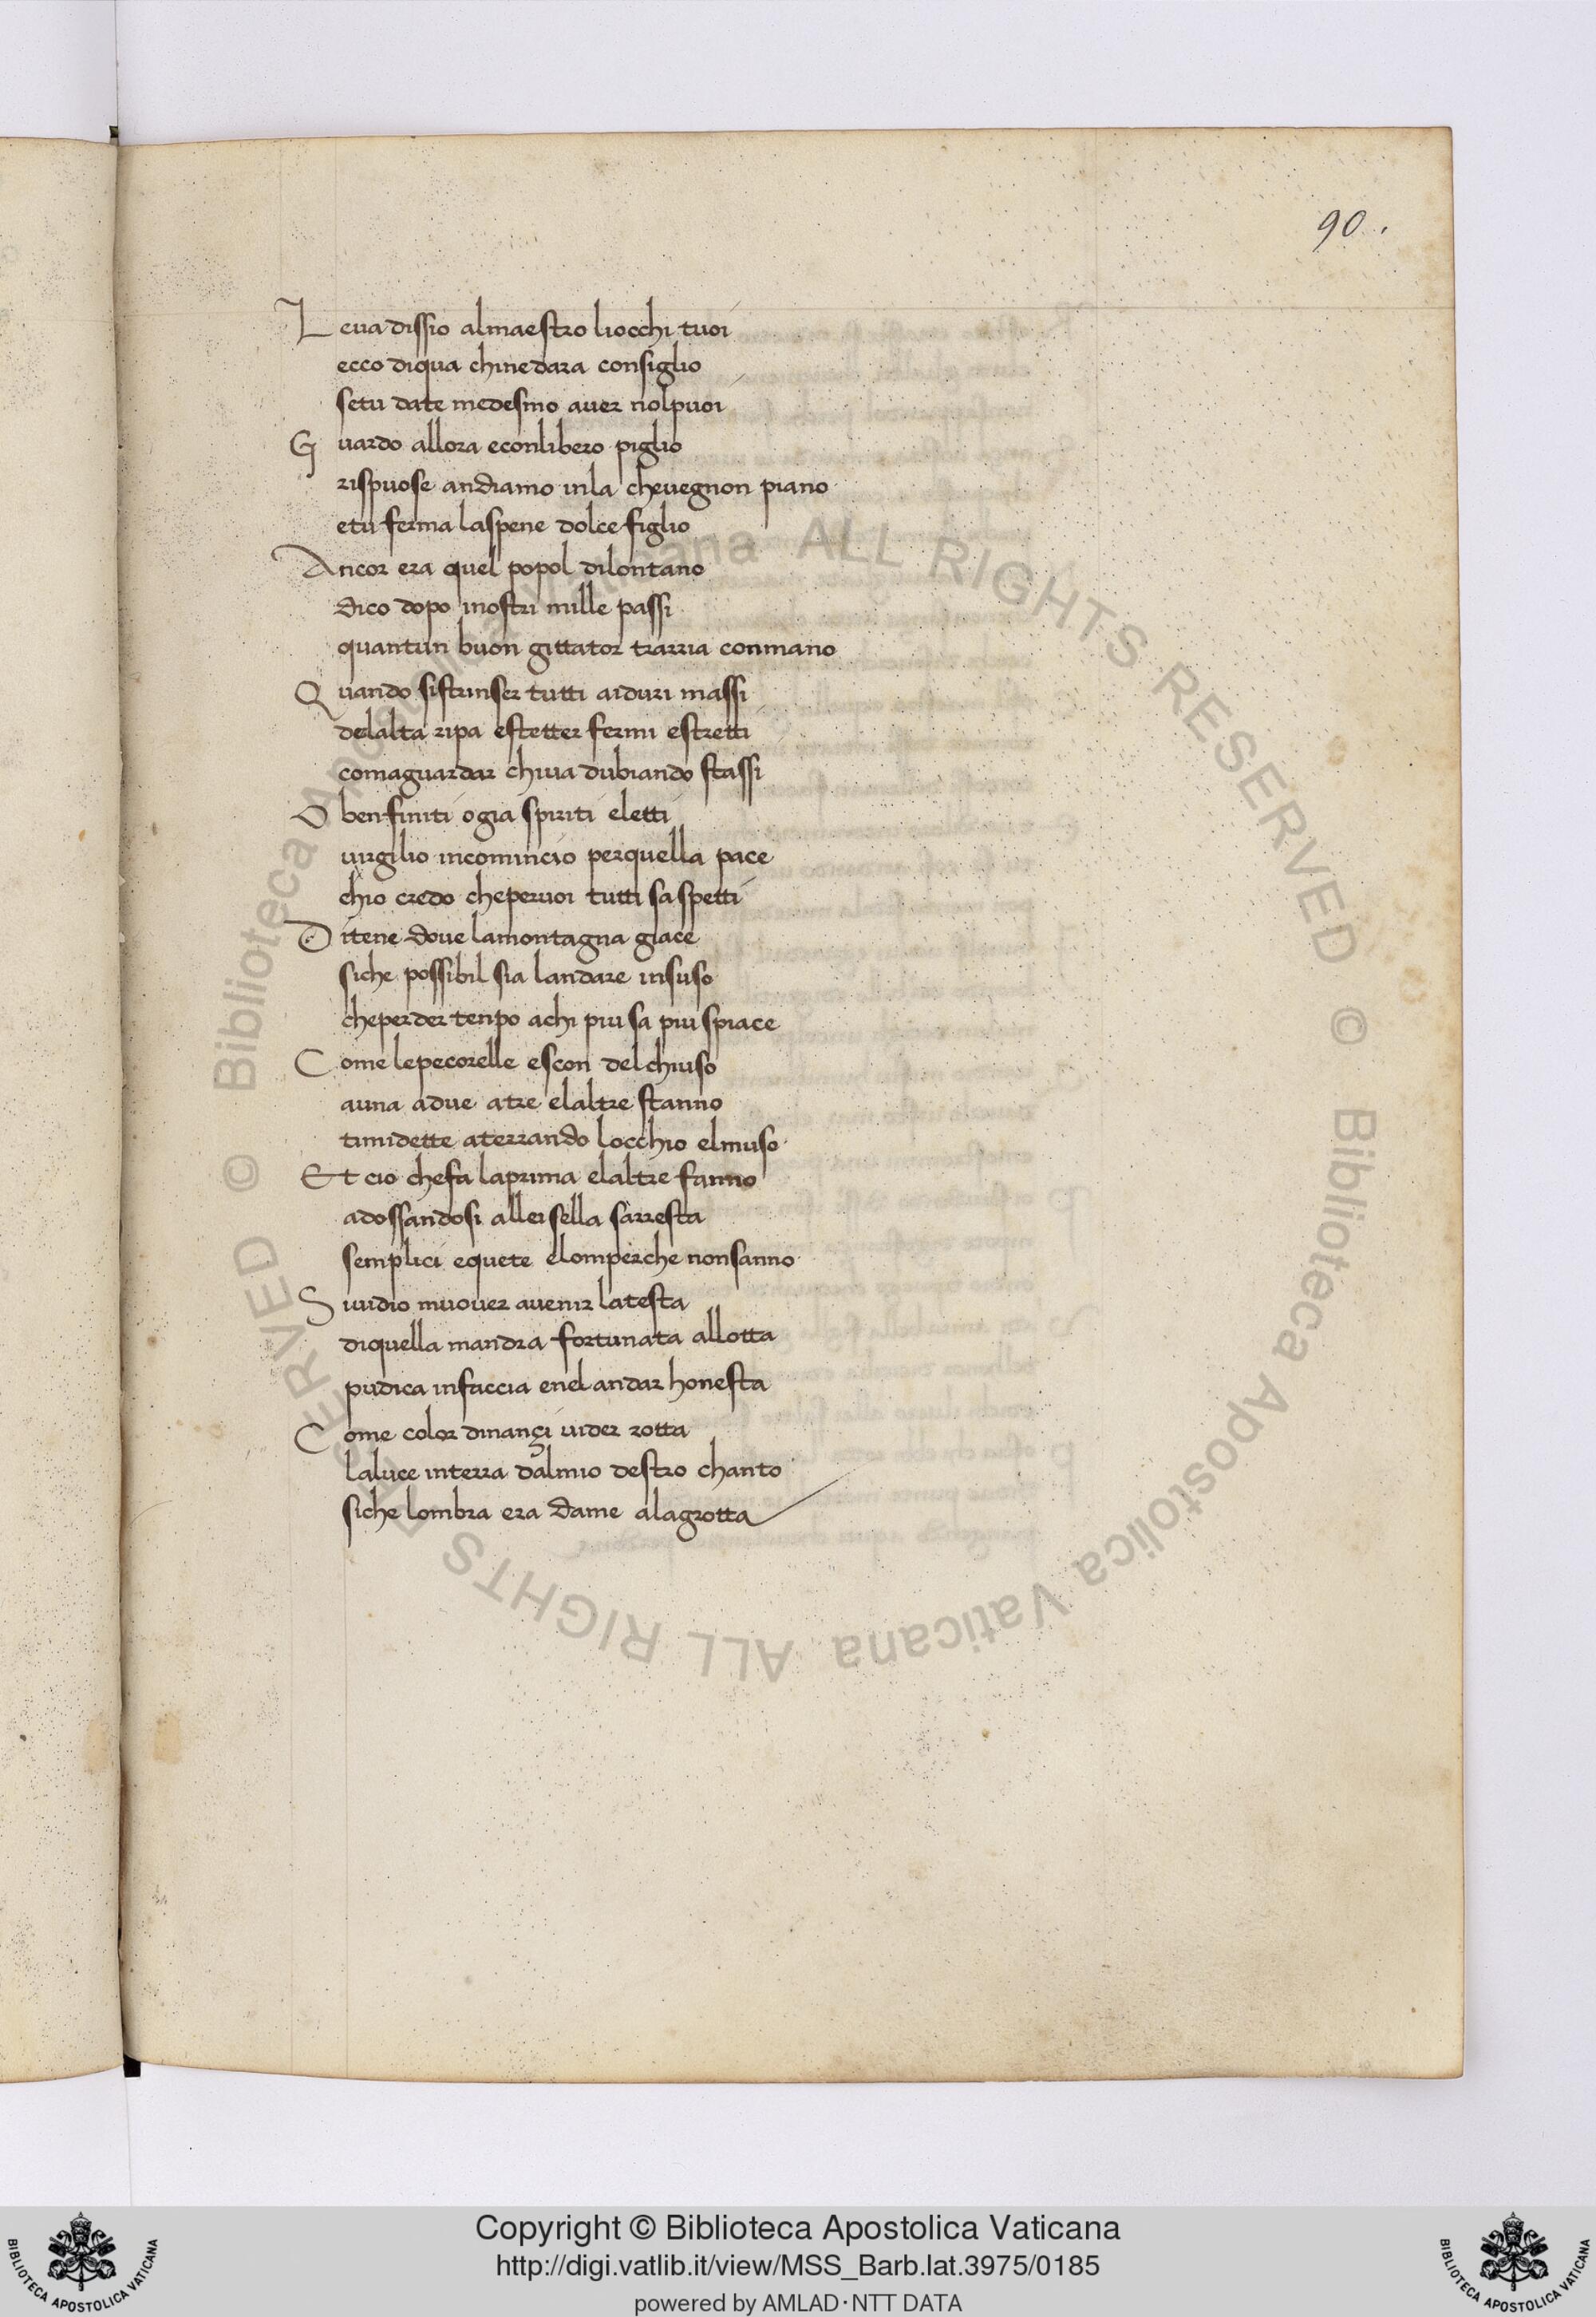 90.
Leua dissio almaestro liocchi tuoi
ecco diqua chinedara consiglio
setu date medesmo auer nolpuoi
Guardo allora econlibero piglio
rispuose andiamo inla cheuegnon piano
etu ferma laspene dolce figlio
Ancor era quel popol dilontano
dico dopo inostri mille passi
quantun buon gittator trarria conmano
Quando sistrinser tutti aiduri massi
delalta ripa estetter fermi estretti
comaguardar chiua dubiando stassi
O benfiniti ogia spiriti eletti
uirgilio incomincio perquella pace
chio credo cheperuoi tutti saspetti
Ditene doue lamontagna giace
siche possibil sia landare insuso
cheperder tenpo achi piu sa piu spiace
Come lepecorelle escon delchiuso
auna adue atre elaltre stanno
timidette aterrando locchio elmuso
Et cio chefa laprima elaltre fanno
adossandosi allei sella sarresta
semplici equete elomperche nonsanno
Suidio muouer auenir latesta
diquella mandra fortunata allotta
pudica infaccia enel andar honesta
Come color dinançi uider rotta
laluce interra dalmio destro chanto
siche lombra era dame alagrotta
© Biblioteca Apostolica Vaticana ALL RIGHTS RESERVED © Biblioteca Apostolica Vaticana ALL RIGHTS RESERVED
Copyright © Biblioteca Apostolica Vaticana
http://digi.vatlib.it/view/MSS_Barb.lat.3975/0185
powered by AMLAD·NTT DATA
BIBLIOTECA APOSTOLICA VATICANA
BIBLIOTECA APOSTOLICA VATICANA